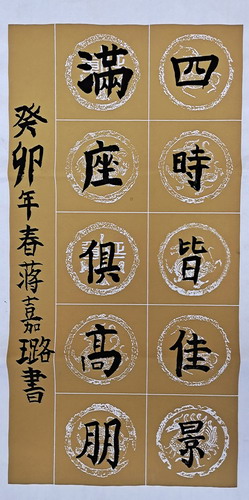 四時皆佳景
滿座俱高朋
癸卯年春蔣嘉璐書